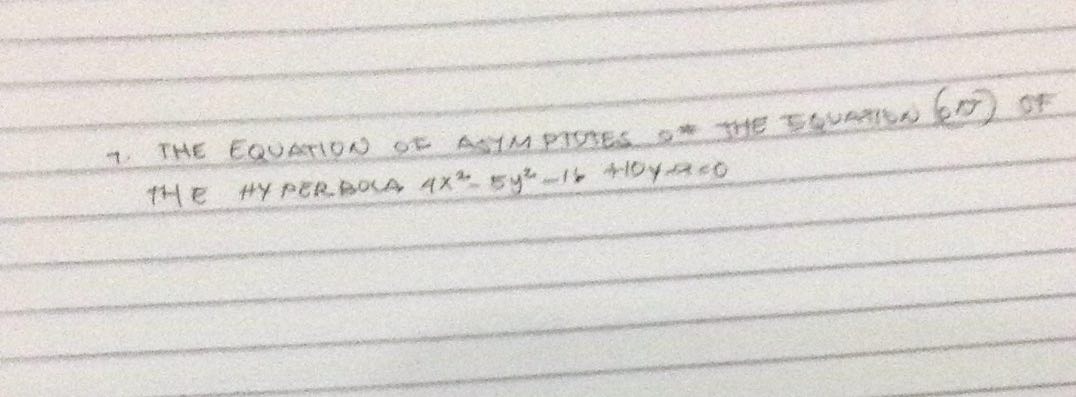 7. THE EQUATION OF ASYMPTOTES THE EQUATION OF
THE HYPERBOLA 4x²- 5y² -16 +10y =0